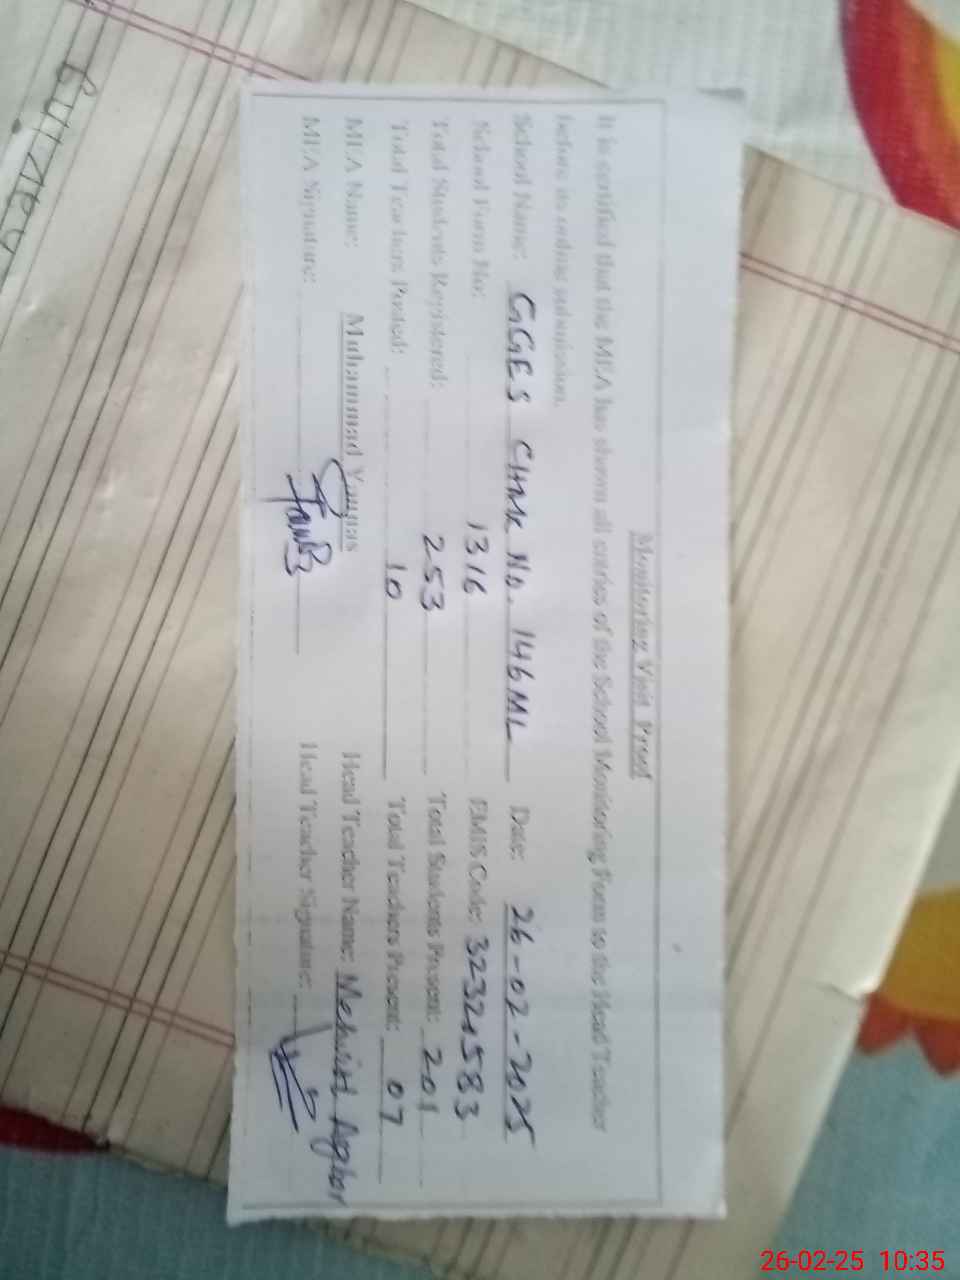 Monitoring Visit Proof
It is certified that the MEA has shown all entries of the School Monitoring Form to the Head Teacher
before its online submission.
School Name: GGES CHAK No. 146 ML Date: 26-02-2025
School Form No: 1316 EMIS Code: 32321583
Total Students Registered: 253 Total Students Present: 201
Total Teachers Posted: 10 Total Teachers Present: 07
MEA Name: Muhammad Younas Head Teacher Name: Mehwish Asghar
MEA Signature: Head Teacher Signature:
26-02-25 10:35